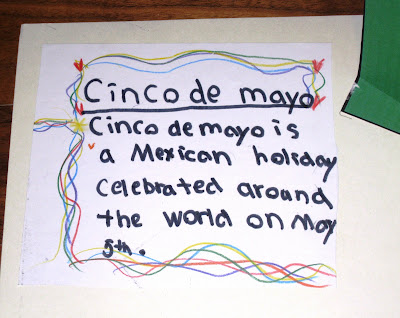 Cinco de mayo
Cinco de mayo is
a Mexican holiday
celebrated around
the world on May
5th.